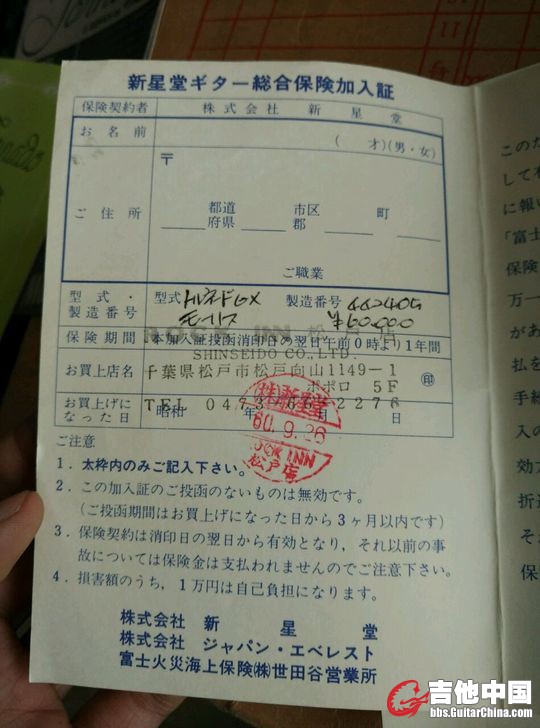 新星堂ギター総合保険加入証
保険契約者 株式会社 新星堂
お名前 ( 才)(男・女)
〒
ご住所 都道府県 市区郡 町
ご職業
型式・製造番号 型式 トルネードGX 製造番号 442405
モーリス ¥60.000
ROCK INN 松戸店
保険期間 本加入証投函消印日の翌日午前0時より1年間
SHINSEIDO CO.,LTD.
お買上店名 千葉県松戸市松戸向山1149-1 印
ポポロ 5F
お買上げになった日 昭和 年
TEL 0473 2276
㈱新星堂
60.9.26
ROCK INN
松戸店
ご注意
1. 太枠内のみご記入下さい。
2. この加入証のご投函のないものは無効です。
(ご投函期間はお買上げになった日から3ヶ月以内です)
3. 保険契約は消印日の翌日から有効となり,それ以前の事
故については保険金は支払われませんのでご注意下さい。
4. 損害額のうち,1万円は自己負担になります。
株式会社 新星堂
株式会社 ジャパン・エベレスト
富士火災海上保険㈱世田谷営業所
このた
して
に報い
「富士
保険
万一
があ
払を
手続
入の
効力
折返
それ
保
吉他中国
bbs.GuitarChina.com